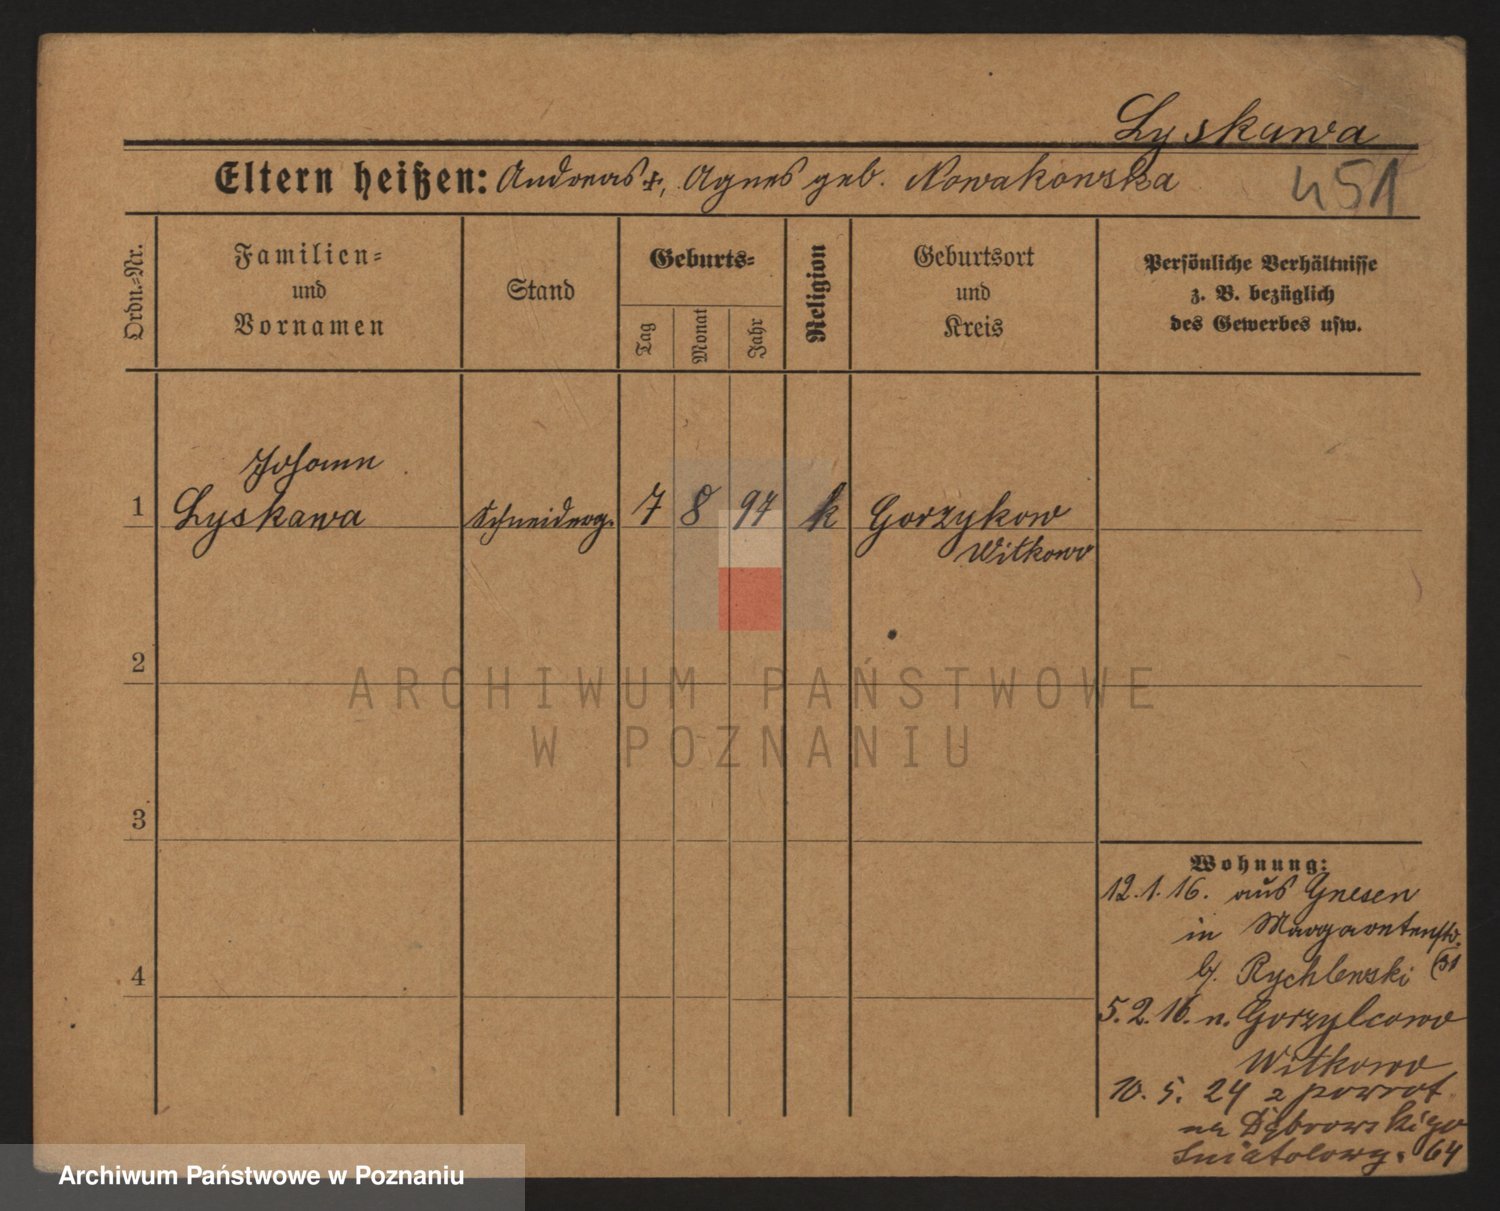 Lyskawa
Eltern heißen: Andreas +, Agnes geb. Nowakowska
451
Ordn.-Nr.
Familien- und Vornamen
Stand
Geburts-
Tag
Monat
Jahr
Religion
Geburtsort und Kreis
Persönliche Verhältnisse
z. B. bezüglich
des Gewerbes usw.
Johann
1 Lyskawa Schneiderg. 7 8 97 k Gorzykow
Witkowo
2
3
4
Wohnung:
12.1.16. aus Gnesen
in Margaretenstr.
b/. Rychlewski (31
5.2.16. n. Gorzykowo
Witkowo
10. 5. 24 z powrot
na Dąbrowskiego
64
ARCHIWUM PAŃSTWOWE
W POZNANIU
Archiwum Państwowe w Poznaniu